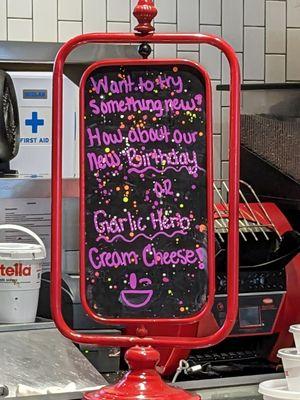 ECOLAB
FIRST AID
Want to try
Something new?
How about our
new Birthday
OR
Garlic Herb
Cream Cheese!
Nutella